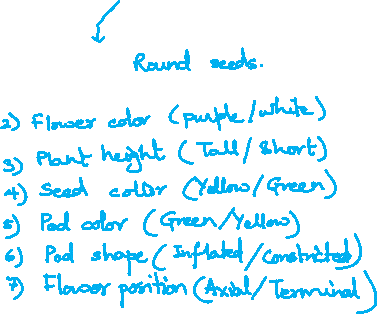 Round seeds.
2) Flower color (purple/white)
3) Plant height (Tall/Short)
4) Seed color (Yellow/Green)
5) Pod color (Green/Yellow)
6) Pod shape (Inflated/constricted)
7) Flower position (Axial/Terminal)